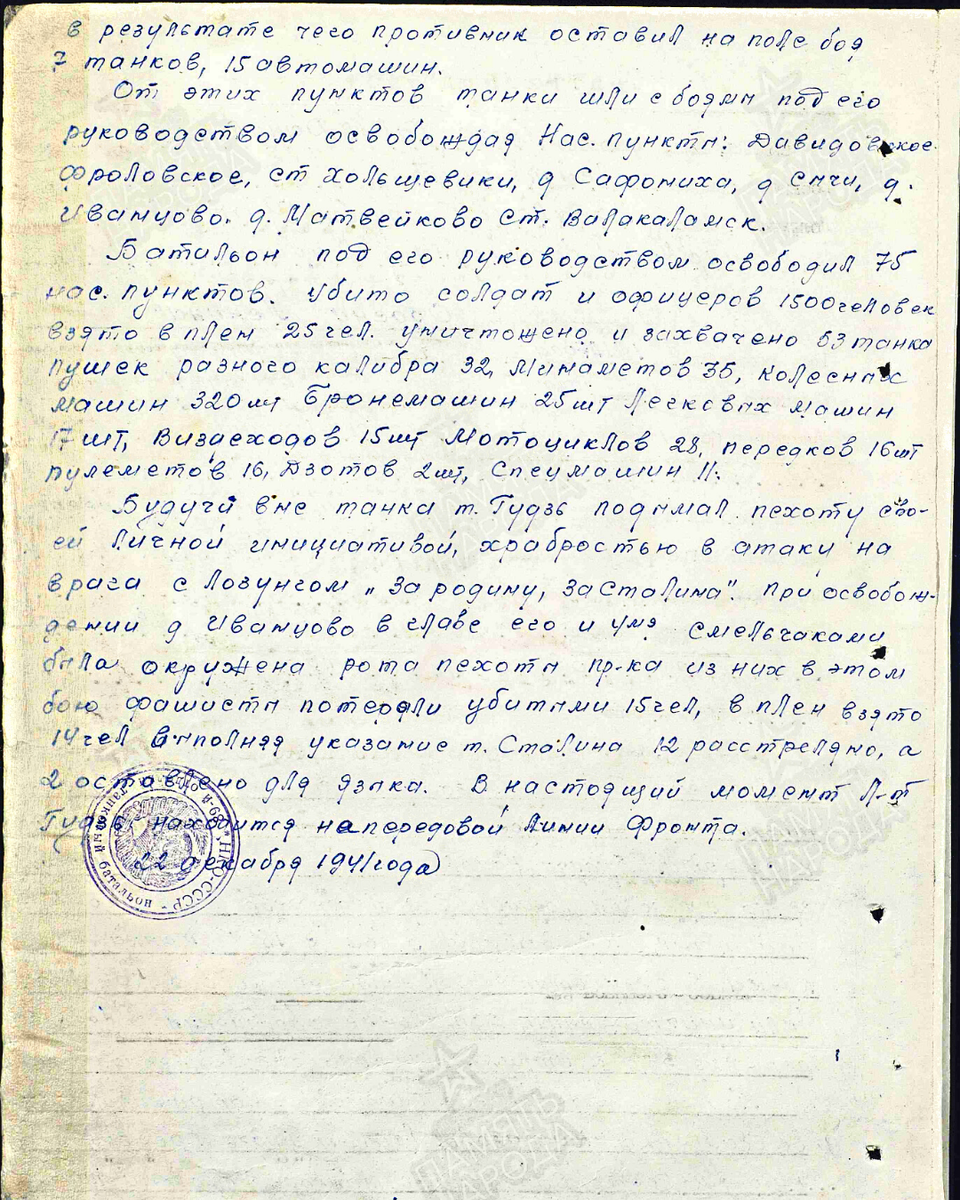 в результате чего противник оставил на поле боя
7 танков, 15 автомашин.
От этих пунктов танки шли с боями под его
руководством освобождая Нас. пункты: Давидовское
Фроловское, ст Холщевики, д Сафониха, д Сычи, д.
Иванцово. д. Матвейково ст. Валакаламск.
Батальон под его руководством освободил 75
нас. пунктов. Убито солдат и офицеров 1500 человек
взято в плен 25 чел. уничтожено и захвачено 53 танка
пушек разного калибра 32, Минаметов 35, колесных
машин 320 шт Бронемашин 25 шт Легковых машин
17 шт, Вездеходов 15 шт Мотоциклов 28, передков 16 шт
пулеметов 16, Дзотов 2 шт, Спецмашин 11.
Будучи вне танка т. Гудзь поднимал пехоту сво-
ей личной инициативой, храбростью в атаку на
врага с лозунгом „За родину, за Сталина". При освобож-
дении д Иванцово в главе его и смельчаками
была окружена рота пехоты пр-ка из них в этом
бою фашисты потеряли убитыми 15 чел, в плен взято
14 чел выполняя указание т. Сталина 12 расстреляно, а
2 оставлено для языка. В настоящий момент Л-т
Гудзь находится на передовой линии Фронта.
22 декабря 1941 года
НКО-СССР
танковый батальон
ПАМЯТЬ
НАРОДА